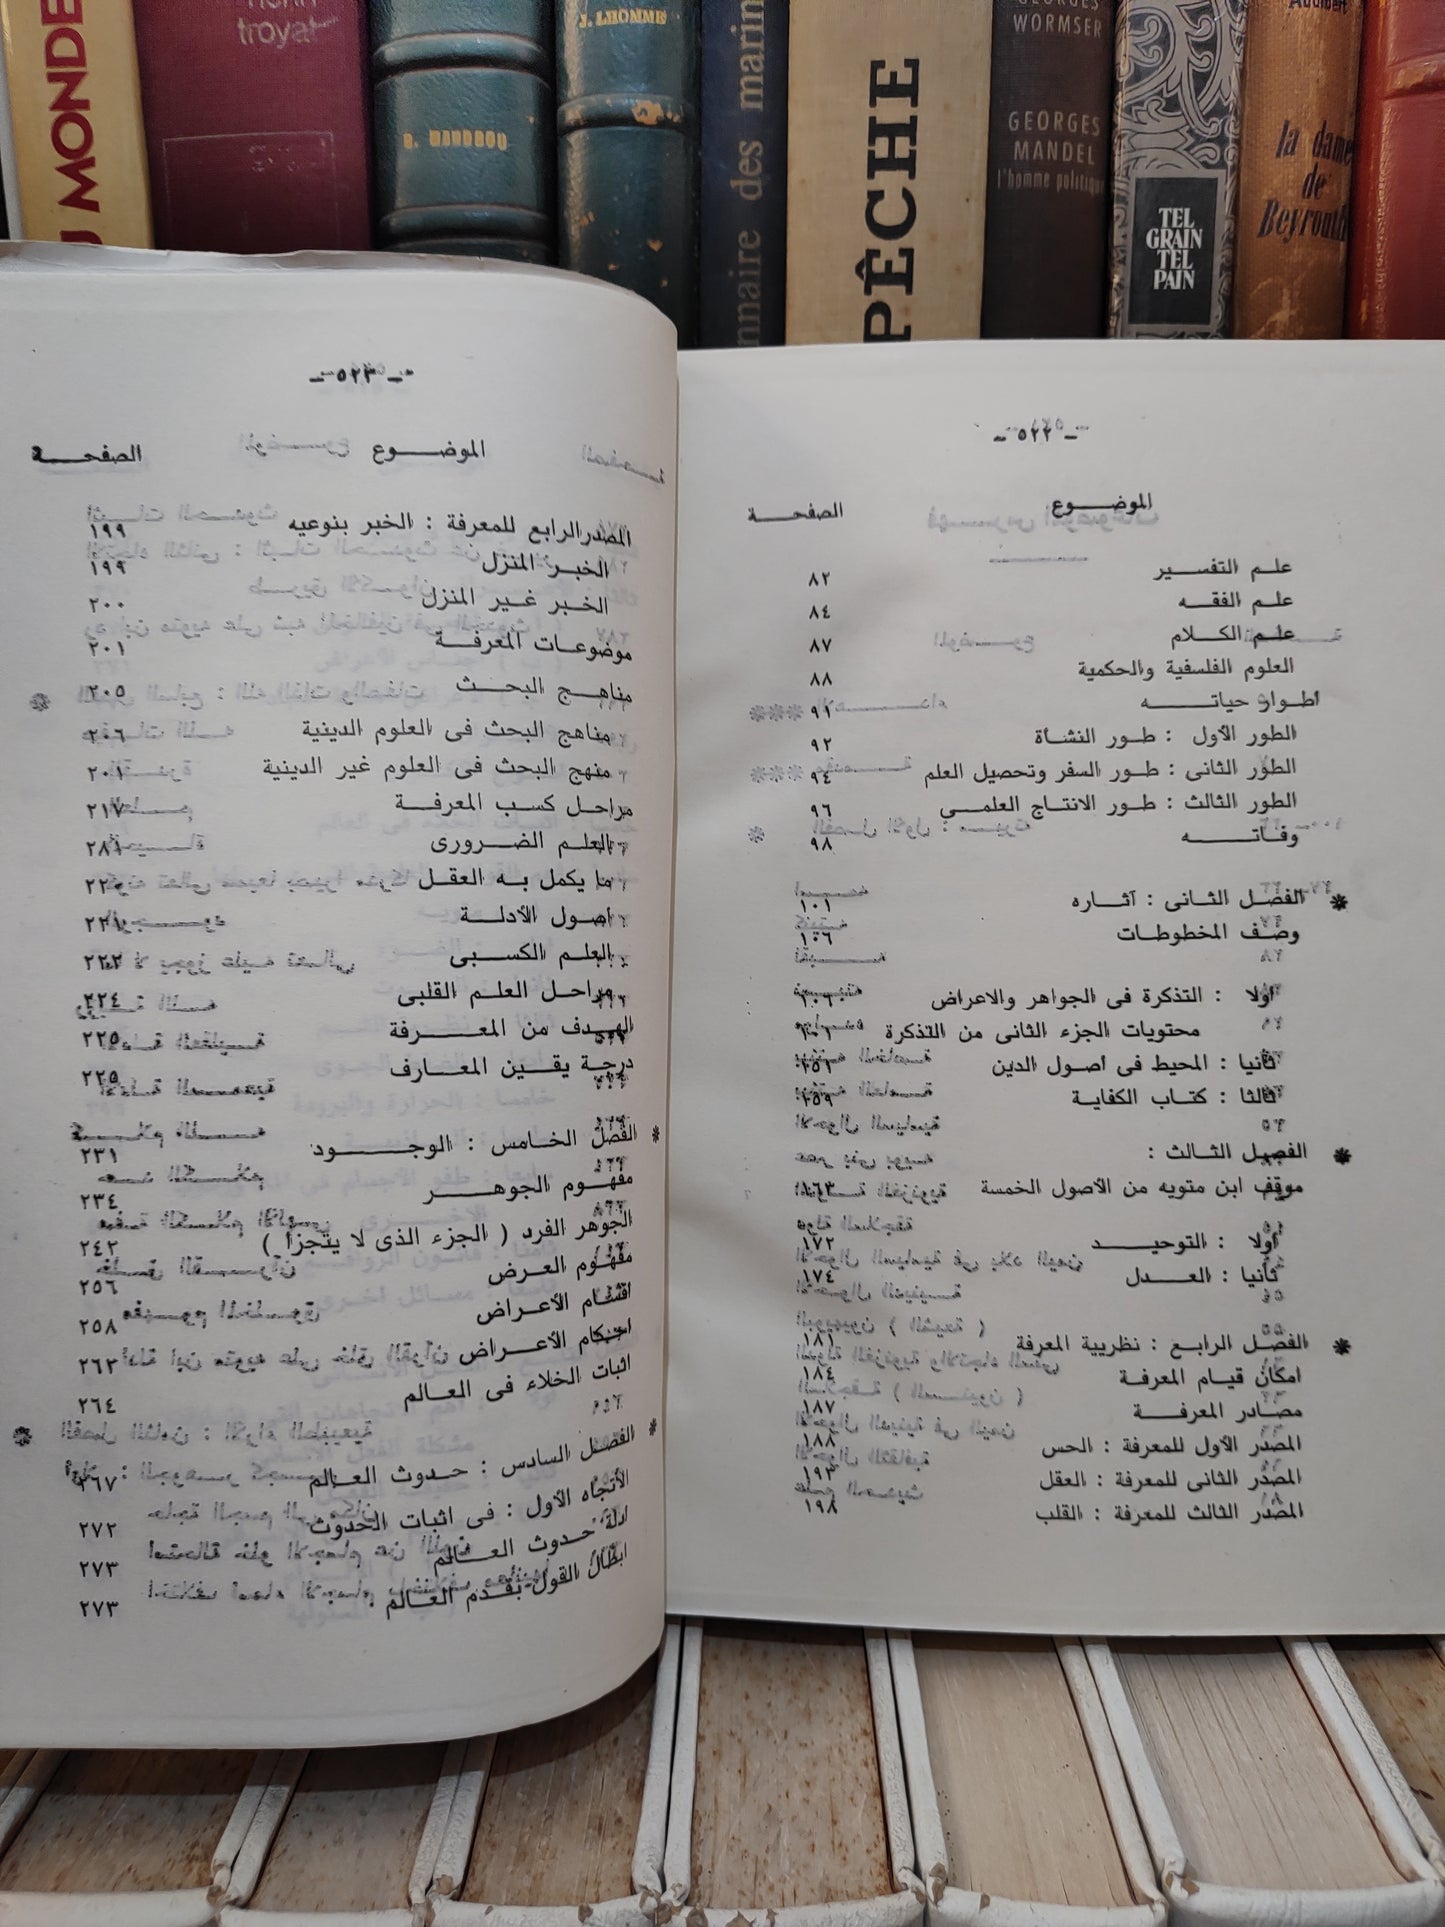 DU MONDE
troyat
R. MANDROU
J. LHOMME
nnaire des marin
PÊCHE
GEORGES
WORMSER
GEORGES
MANDEL
l'homme politique
TEL
GRAIN
TEL
PAIN
la dame
de
Beyrouth
ـ ٥٢٢ ـ
الموضوع الصفحة
علم التفسير ٨٢
علم الفقه ٨٤
علم الكلام ٨٧
العلوم الفلسفية والحكمية ٨٨
اطوار حياته ٩١
الطور الأول : طور النشأة ٩٢
الطور الثانى : طور السفر وتحصيل العلم ٩٤
الطور الثالث : طور الانتاج العلمى ٩٦
وفاته ٩٨
* الفصل الثانى : آثاره ١٠١
وصف المخطوطات ١٠٦
أولا : التذكرة فى الجواهر والاعراض
محتويات الجزء الثانى من التذكرة
ثانيا : المحيط فى اصول الدين
ثالثا : كتاب الكفاية
* الفصل الثالث :
موقف ابن متويه من الأصول الخمسة
أولا : التوحيد ١٧٢
ثانيا : العدل ١٧٤
* الفصل الرابع : نظريية المعرفة ١٨١
امكان قيام المعرفة ١٨٤
مصادر المعرفة ١٨٧
المصدر الأول للمعرفة : الحس ١٨٨
المصدر الثانى للمعرفة : العقل ١٩٣
المصدر الثالث للمعرفة : القلب ١٩٨
ـ ٥٢٣ ـ
الموضوع الصفحة
المصدر الرابع للمعرفة : الخبر بنوعيه ١٩٩
الخبر المنزل ١٩٩
الخبر غير المنزل ٢٠٠
موضوعات المعرفة ٢٠١
مناهج البحث ٢٠٥
مناهج البحث فى العلوم الدينية ٢٠٦
منهج البحث فى العلوم غير الدينية
مراحل كسب المعرفة ٢١٧
العلم الضرورى
ما يكمل به العقل
اصول الأدلة ٢٢١
العلم الكسبى ٢٢٢
مراحل العلم القلبى ٢٢٤
الهدف من المعرفة ٢٢٥
درجة يقين المعارف ٢٢٥
* الفصل الخامس : الوجود ٢٣١
مفهوم الجوهر ٢٣٤
الجوهر الفرد ( الجزء الذى لا يتجزأ ) ٢٤٢
مفهوم العرض ٢٥٦
اقسام الأعراض ٢٥٨
احكام الأعراض ٢٦٢
اثبات الخلاء فى العالم ٢٦٤
* الفصل السادس : حدوث العالم ٢٦٧
الأتجاه الأول : فى اثبات الحدوث ٢٧٢
ادلة حدوث العالم ٢٧٣
ابطال القول بقدم العالم . ٢٧٣